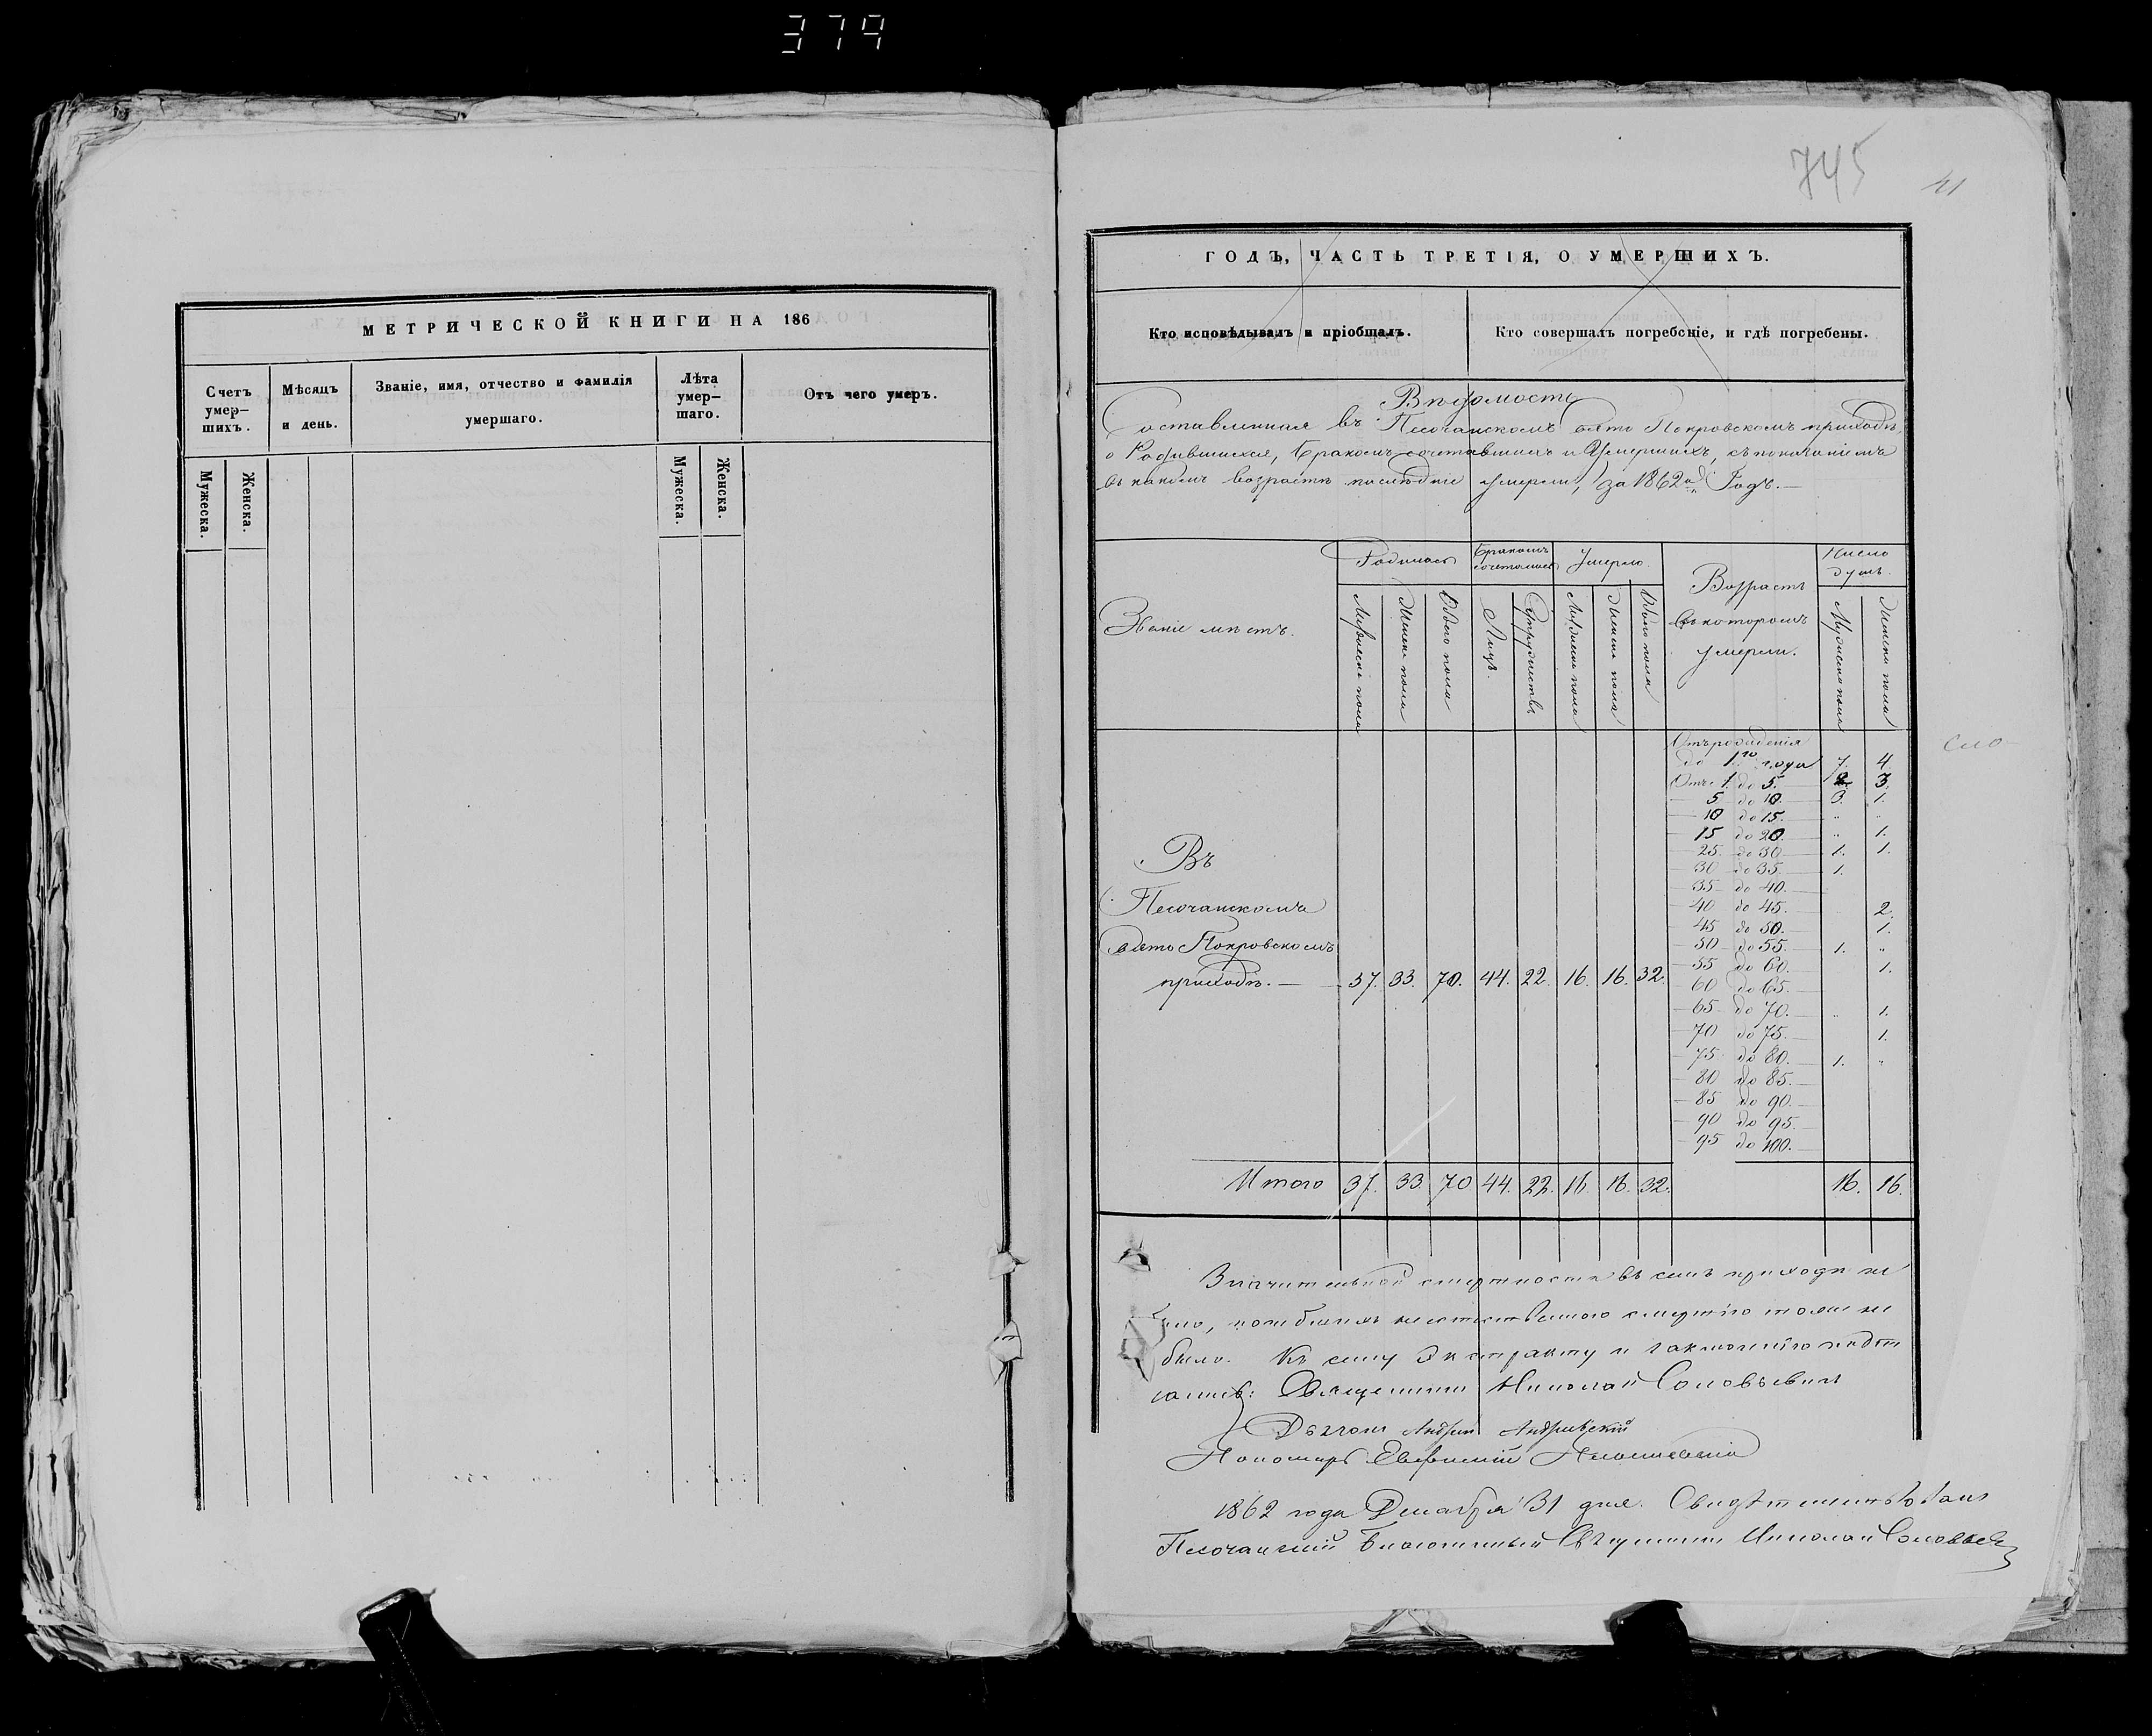 379
МЕТРИЧЕСКОЙ КНИГИ НА 186
Счетъ умер-шихъ.
Мѣсяцъ и день.
Званіе, имя, отчество и фамилія умершаго.
Лѣта умер-шаго.
Отъ чего умеръ.
Мужеска.
Женска.
Мужеска.
Женска.
745
41
ГОДЪ, ЧАСТЬ ТРЕТІЯ, О УМЕРШИХЪ.
Кто исповѣдывалъ и пріобщалъ.
Кто совершалъ погребеніе, и гдѣ погребены.
Вѣдомость
Составленная въ Песочанскомъ Свято Покровскомъ приходѣ,
о Родившихся, Бракомъ сочетавшихъ и Умершихъ, съ показаніемъ
въ какомъ возрастѣ послѣдніе умерли, за 1862й Годъ.
Званіе мѣстъ.
Родилось
Бракомъ сочеталось
Умерло.
Возрастъ въ которомъ умерли.
Число душъ.
Мужеска пола
Женска пола
Обоего пола
Лицъ.
Супружествъ
Мужеска пола
Женска пола
Обоего пола
Мужеска пола
Женска пола
Отъ рожденія
до 1го года 7. 4.
Отъ 1. до 5. 2. 3.
5 до 10. 3. 1.
10 до 15. " "
15 до 20. " 1.
25 до 30 1. 1.
30 до 35. 1.
35 до 40.
40 до 45. 2.
45 до 50. 1.
50 до 55. 1. "
55 до 60. 1.
60 до 65.
65 до 70. " 1.
70 до 75. 1.
75 до 80. 1. "
80 до 85.
85 до 90.
90 до 95.
95 до 100.
Въ
Песочанскомъ
Свято Покровскомъ
приходѣ. — 37. 33. 70. 44. 22. 16. 16. 32.
Итого 37. 33. 70 44. 22. 16. 16. 32. 16. 16.
Значительной смертности въ семъ приходѣ не
было, погибшихъ неестественною смертію тоже не
было. Къ сему Экстракту и заключенію подпи
Священникъ Николай Соловьевичъ
Дьячокъ Андрей Андріевскій
Пономарь
1862 года Декабря 31 дня. Свидѣтельствовалъ
Песочанскій Благочинный Священникъ Николай